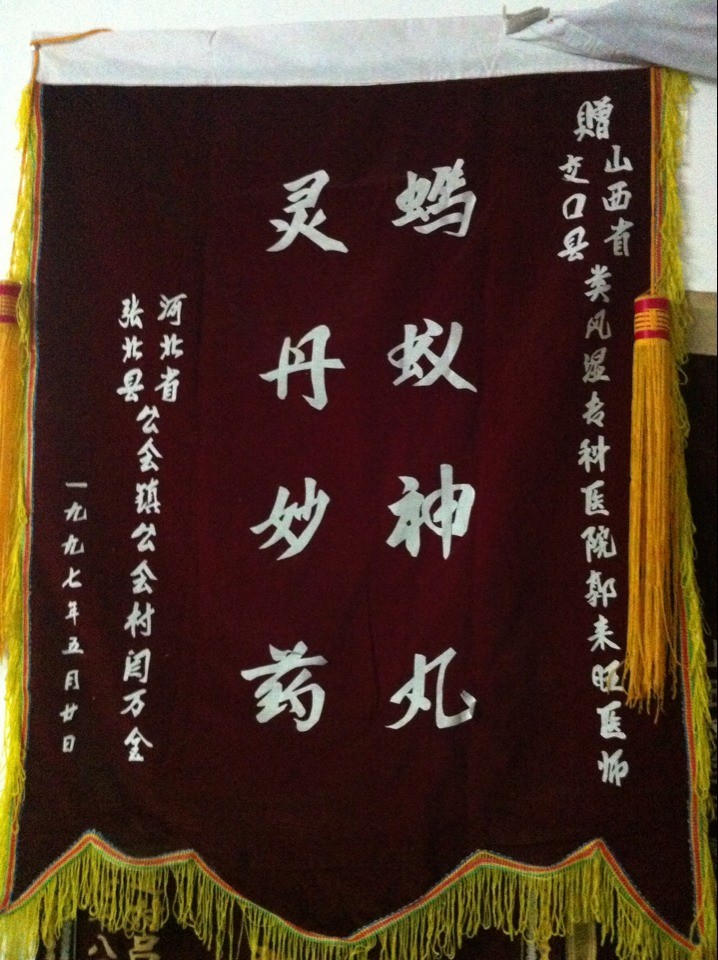 赠山西省交口县类风湿专科医院郭来旺医师
蚂蚁神丸
灵丹妙药
河北省张北县公会镇公会村闫万金
一九九七年五月廿日
八